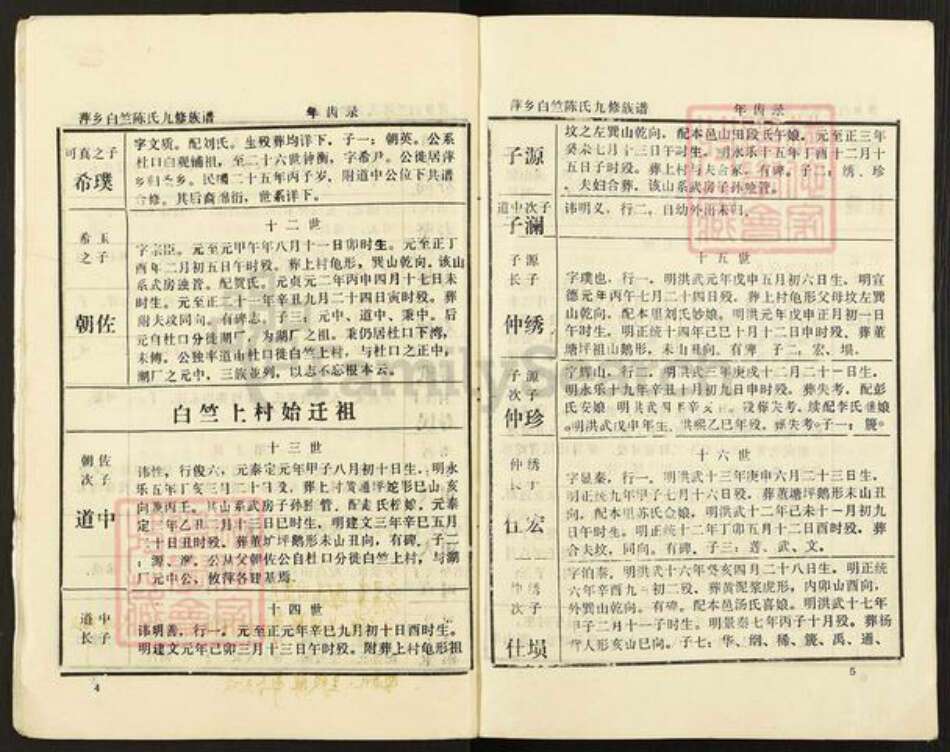 萍乡白竺陈氏九修族谱
年齿录
可真之子
希璞
字文质。配刘氏。生殁葬均详下。子一：朝英。公系
杜口自觐辅祖，至二十六世诗衡，字希尹。公徙居萍
乡归圣乡。民国二十五年丙子岁，附道中公位下共谱
合修。其后裔绵衍，世系详下。
十二世
希玉
之子
朝佐
字宗臣。元至元甲午年八月十一日卯时生。元至正丁
酉年二月初五日午时殁。葬上村龟形，巽山乾向。该山
系武房浊管。配贺氏。元贞元二年丙申四月十七日未
时生。元至正二十一年辛丑九月二十四日寅时殁。葬
附夫坟同向。有碑志。子三：元中、道中、秉中。后
元自杜口分徙湖厂，为湖厂之祖。秉仍居杜口下湾，
未傅。公独率道由杜口徙白竺上村，与杜口之正中，
湖厂之元中，三族並列，以志不忘根本云。
白竺上村始迁祖
十三世
朝佐
次子
道中
讳性，行俊六，元泰定元年甲子八月初十日生，明永
乐五年丁亥三月二十日殁，葬上村黄通坪蛇形巳山亥
向兼丙壬。该山系武房子孙经管。配
定二年乙丑二月十三日巳时生，明建文三年辛巳五月
二十日丑时殁，葬董塘坪鹅形未山丑向，有碑，子二
：源、澜，公从父朝佐公自杜口分徙白竺上村，与湖
厂元中公，攸萍各建基焉。
十四世
道中
长子
讳明善，行一。元至正元年辛巳九月初十日酉时生。
明建文元年己卯三月十三日午时殁。附葬上村龟形祖
4
萍乡白竺陈氏九修族谱
年齿录
子源
坟之左巽山乾向，配本邑山田段氏午娘，元至正三年
癸未七月十三日午时生。明永乐十五年丁酉十二月十
五日子时殁。葬上村与夫合冢，有碑。子二：绣、珍
，夫妇合葬，该山系武房子孙浊管。
道中次子
子澜
讳明义，行二。自幼外出未归。
十五世
子源
长子
仲绣
字璞也，行一。明洪武元年戊申五月初六日生，明宣
德元年丙午七月二十四日殁，葬上村龟形父母坟左巽
山乾向，配本里刘氏妙娘。明洪元年戊申正月初一日
午时生，明正统十四年己巳十月十二日申时殁、葬董
塘坪祖山鹅形，未山丑向。有碑 子二：宏、埙。
子源
次子
仲珍
字辉山，行二。明洪武三年庚戌十二月二十一日生，
明永乐十九年辛丑十月初九日申时殁。葬失考，配彭
氏安娘，明洪武四年辛亥 日。殁葬失考。续配李氏 娘
。明洪武戊申年生，洪熙乙巳年殁，葬失考。子一：
十六世
仲绣
长子
仕宏
字显秦，行一。明洪武十三年庚申六月二十三日生，
明正统九年甲子七月十六日殁，葬董塘坪鹅形未山丑
向，配本里苏氏金娘，明洪武十二年己未十一月初九
日午时生，明正统十二年丁卯五月十二日酉时殁，葬
合夫坟，同向。有碑。子三：莲、武、文。
仲绣
次子
仕埙
字泊秦，明洪武十六年癸亥四月二十八日生，明正统
六年辛酉九月初二殁，葬黄泥浆虎形，内卯山酉向，
外巽山乾向。有碑。配本邑汤氏喜娘。明洪武十七年
甲子二月十一子时生。明景泰七年丙子十月殁。葬杨
家人形亥山巳向。子七：华、纲、稀、 、禹、通、
5